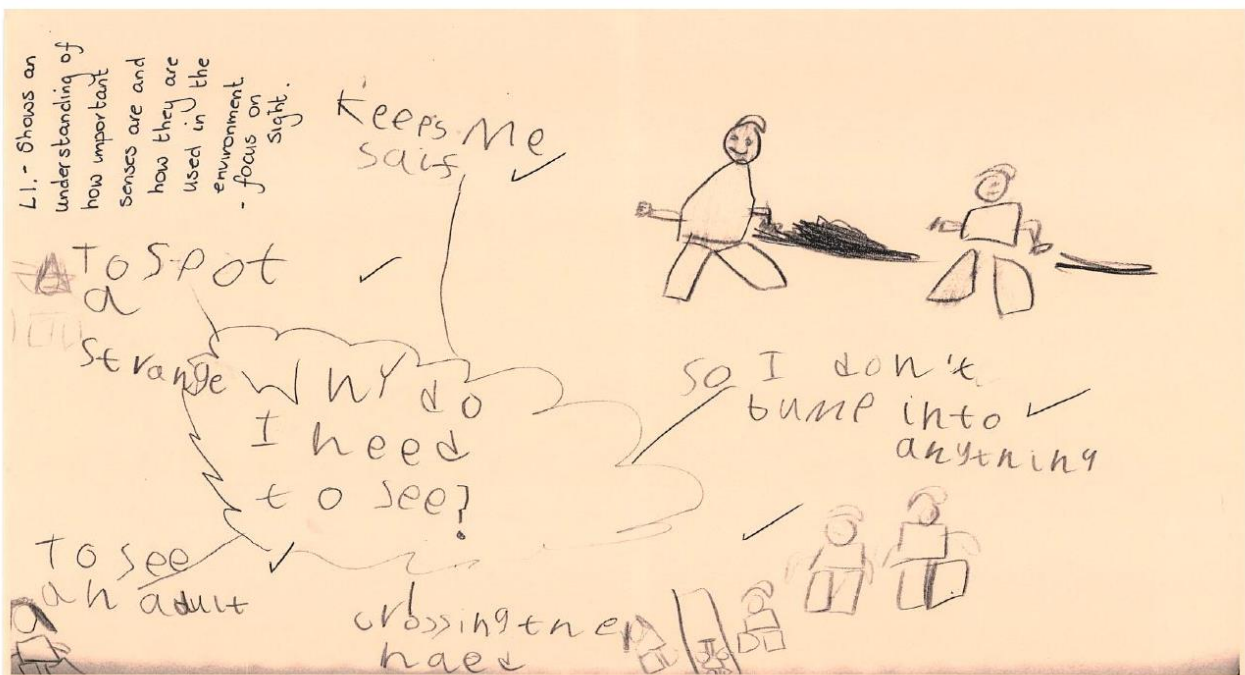 L1. - Shows an
understanding of
how important
senses are and
how they are
used in the
environment
- focus on
sight.
Keeps Me
saif
To Spot
a
strange
Why do
I need
to see?
So I don't
bump into
anything
To see
an adult
crossing the